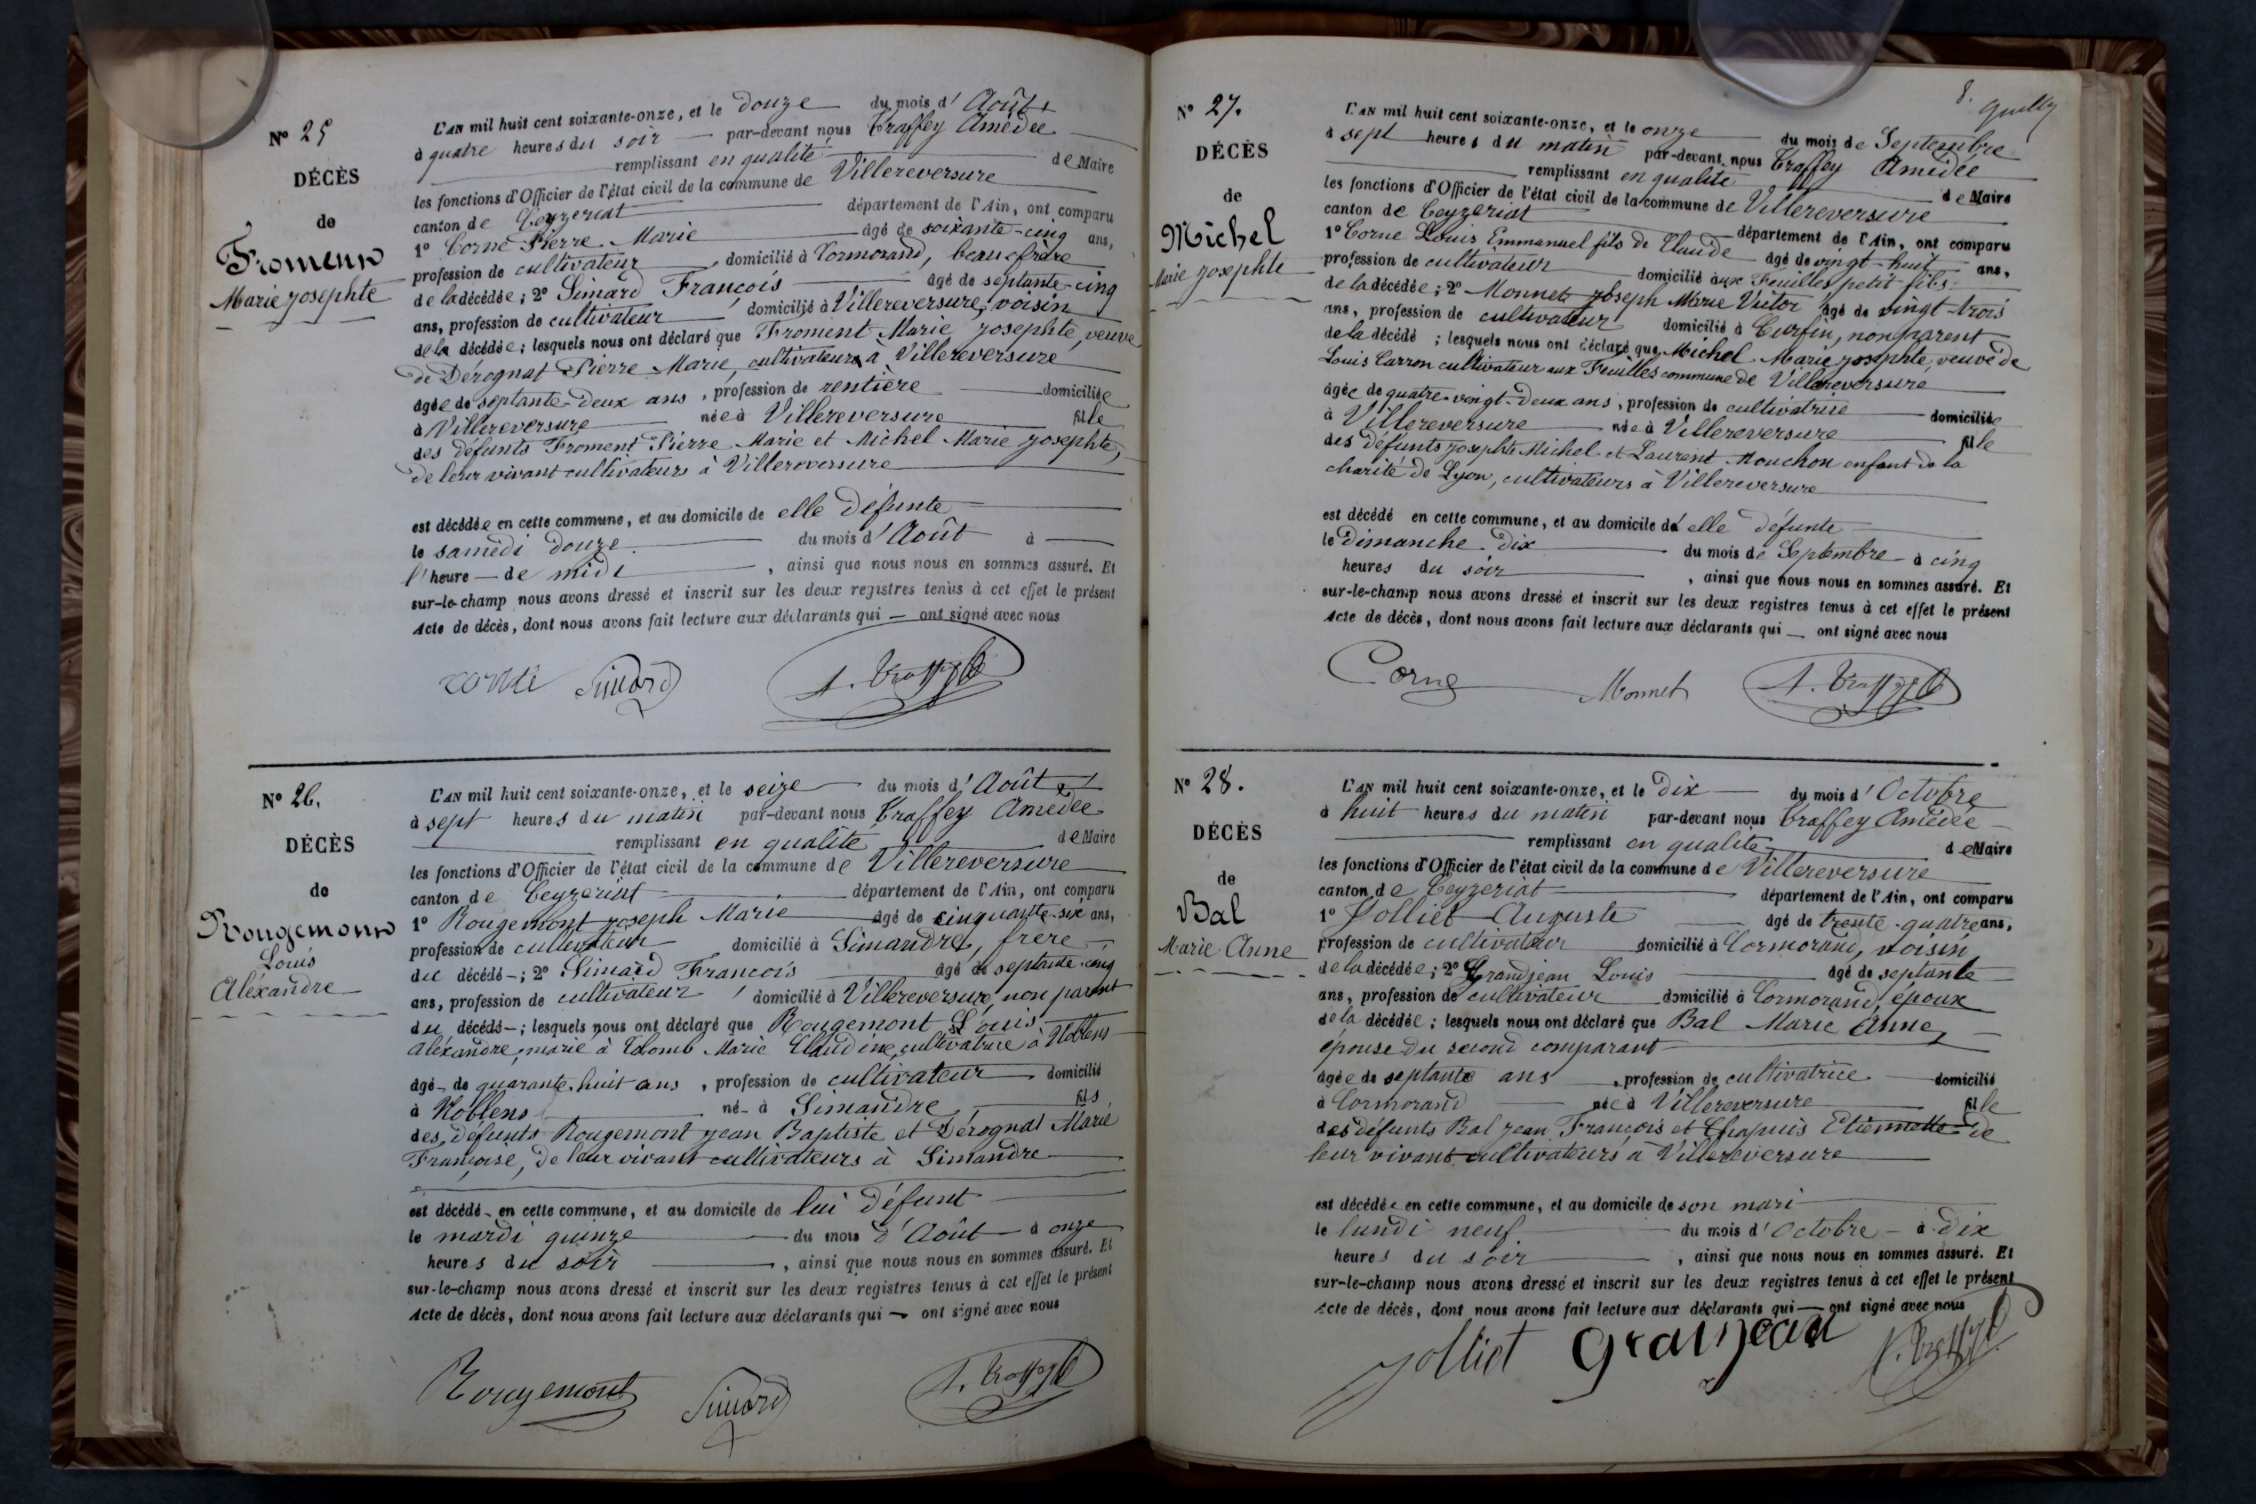 N° 25
DÉCÈS
de
Froment
Marie Josephte
L'AN mil huit cent soixante-onze, et le douze du mois d'Août
à quatre heures du soir par-devant nous Traffey Amédée
remplissant en qualité de Maire
les fonctions d'Officier de l'état civil de la commune de Villereversure
canton de Ceyzeriat département de l'Ain, ont comparu
1° Corne Pierre Marie âgé de soixante-cinq ans,
profession de cultivateur, domicilié à Cormorand, beau frère
de la décédée; 2° Simard François âgé de septante-cinq
ans, profession de cultivateur domicilié à Villereversure, voisin
de la décédée; lesquels nous ont déclaré que Froment Marie Josephte, veuve
de Dérognat Pierre Marie, cultivateurs à Villereversure
âgée de septante-deux ans, profession de rentière domiciliée
à Villereversure née à Villereversure fille
des défunts Froment Pierre Marie et Michel Marie Josephte,
de leur vivant cultivateurs à Villereversure
est décédée en cette commune, et au domicile de elle défunte
le samedi douze du mois d'Août à
l'heure de midi, ainsi que nous nous en sommes assuré. Et
sur-le-champ nous avons dressé et inscrit sur les deux registres tenus à cet effet le présent
Acte de décès, dont nous avons fait lecture aux déclarants qui ont signé avec nous
Simard
N° 26.
DÉCÈS
de
Rougemont
Louis
Aléxandre
L'AN mil huit cent soixante-onze, et le seize du mois d'Août
à sept heures du matin par-devant nous Traffey Amédée
remplissant en qualité de Maire
les fonctions d'Officier de l'état civil de la commune de Villereversure
canton de Ceyzeriat département de l'Ain, ont comparu
1° Rougemont Joseph Marie âgé de cinquante-six ans,
profession de cultivateur domicilié à Simandre, frère
du décédé; 2° Simard François âgé de septante-cinq
ans, profession de cultivateur domicilié à Villereversure, non parent
du décédé; lesquels nous ont déclaré que Rougemont Louis
Aléxandre, marié à Colomb Marie Claudine, cultivatrice à Noblens
âgé de quarante-huit ans, profession de cultivateur domicilié
à Noblens né à Simandre fils
des défunts Rougemont Jean Baptiste et Dérognat Marie
Françoise, de leur vivant cultivateurs à Simandre
est décédé en cette commune, et au domicile de lui défunt
le mardi quinze du mois d'Août à onze
heures du soir, ainsi que nous nous en sommes assuré. Et
sur-le-champ nous avons dressé et inscrit sur les deux registres tenus à cet effet le présent
Acte de décès, dont nous avons fait lecture aux déclarants qui ont signé avec nous
Rougemont Simard
8.
N° 27.
DÉCÈS
de
Michel
Marie Josephte
L'AN mil huit cent soixante-onze, et le onze du mois de Septembre
à sept heures du matin par-devant nous Traffey Amédée
remplissant en qualité de Maire
les fonctions d'Officier de l'état civil de la commune de Villereversure
canton de Ceyzeriat département de l'Ain, ont comparu
1° Corne Louis Emmanuel fils de Claude âgé de vingt-huit ans,
profession de cultivateur domicilié aux Feuilles petit fils
de la décédée; 2° Monnet Joseph Marie Victor âgé de vingt-trois
ans, profession de cultivateur domicilié à Curfin, non parent
de la décédé; lesquels nous ont déclaré que Michel Marie Josephte, veuve de
Louis Carron cultivateur aux Feuilles commune de Villereversure
âgée de quatre-vingt-deux ans, profession de cultivatrice domiciliée
à Villereversure née à Villereversure fille
des défunts Josephte Michel et Laurent Mouchon enfant de la
charité de Lyon, cultivateurs à Villereversure
est décédé en cette commune, et au domicile d'elle défunte
le dimanche dix du mois de Septembre à cinq
heures du soir, ainsi que nous nous en sommes assuré. Et
sur-le-champ nous avons dressé et inscrit sur les deux registres tenus à cet effet le présent
Acte de décès, dont nous avons fait lecture aux déclarants qui ont signé avec nous
Corne Monnet
N° 28.
DÉCÈS
de
Bal
Marie Anne
L'AN mil huit cent soixante-onze, et le dix du mois d'Octobre
à huit heures du matin par-devant nous Traffey Amédée
remplissant en qualité de Maire
les fonctions d'Officier de l'état civil de la commune de Villereversure
canton de Ceyzeriat département de l'Ain, ont comparu
1° Jolliet Auguste âgé de trente-quatre ans,
profession de cultivateur domicilié à Cormorand, voisin
de la décédée; 2° Grandjean Louis âgé de septante
ans, profession de cultivateur domicilié à Cormorand, époux
de la décédée; lesquels nous ont déclaré que Bal Marie Anne,
épouse du second comparant
âgée de septante ans, profession de cultivatrice domicilié
à Cormorand née à Villereversure fille
des défunts Bal Jean François et Chapuis Etiennette de
leur vivant cultivateurs à Villereversure
est décédée en cette commune, et au domicile de son mari
le lundi neuf du mois d'Octobre à dix
heures du soir, ainsi que nous nous en sommes assuré. Et
sur-le-champ nous avons dressé et inscrit sur les deux registres tenus à cet effet le présent
Acte de décès, dont nous avons fait lecture aux déclarants qui ont signé avec nous
Jolliet Granjean